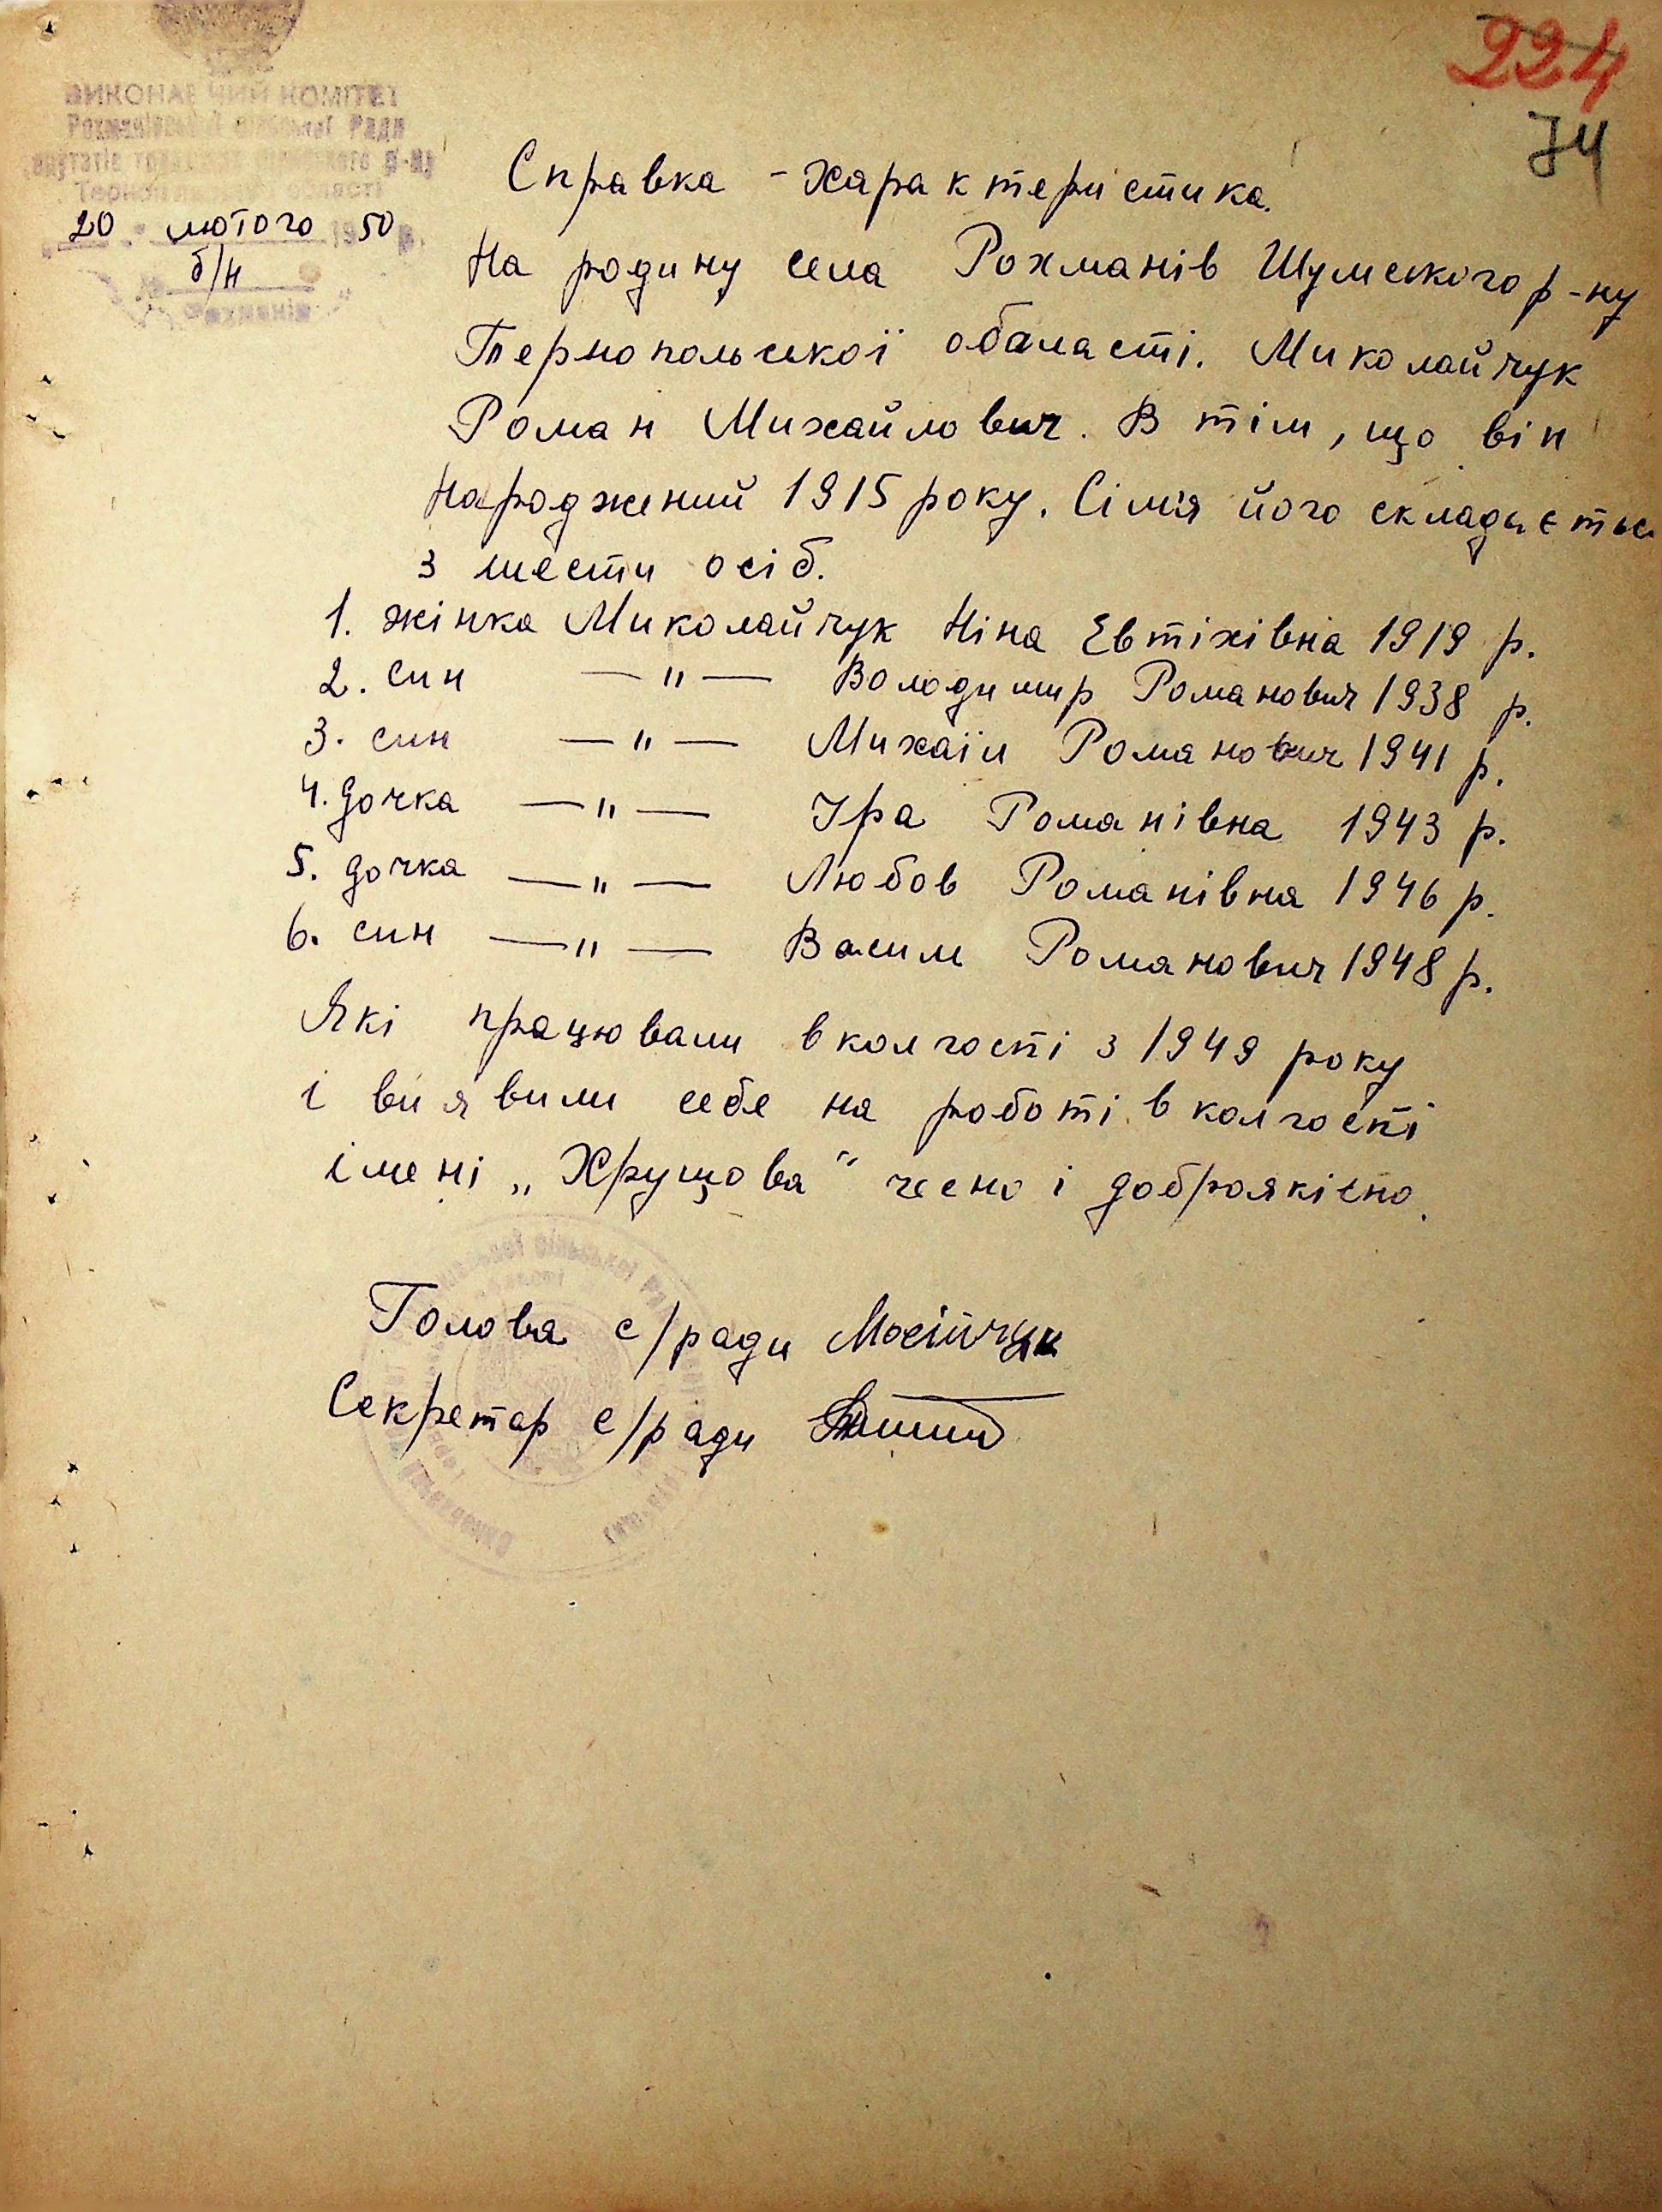 224
74
ВИКОНАВЧИЙ КОМІТЕТ
Рохманівської сільської Ради
20 лютого 1950 р.
б/н
Справка - характеристика.
На родину села Рохманів Шумського р-ну
Тернопольської обаласті. Миколайчук
Роман Михайлович. В тім, що він
народжений 1915 року. Сімя його складаєтьс
з шести осіб.
1. жінка Миколайчук Ніна Евтіхівна 1919 р.
2. син —"— Володимир Романович 1938 р.
3. син —"— Михаіл Романович 1941 р.
4. дочка —"— Іра Романівна 1943 р.
5. дочка —"— Любов Романівна 1946 р.
6. син —"— Василь Романович 1948 р.
Які працювали в колгоспі з 1949 року
і виявили себе на роботі в колгоспі
імені „Хрущова" чесно і доброякісно.
Голова с/ради Мосійчук
Секретар с/ради